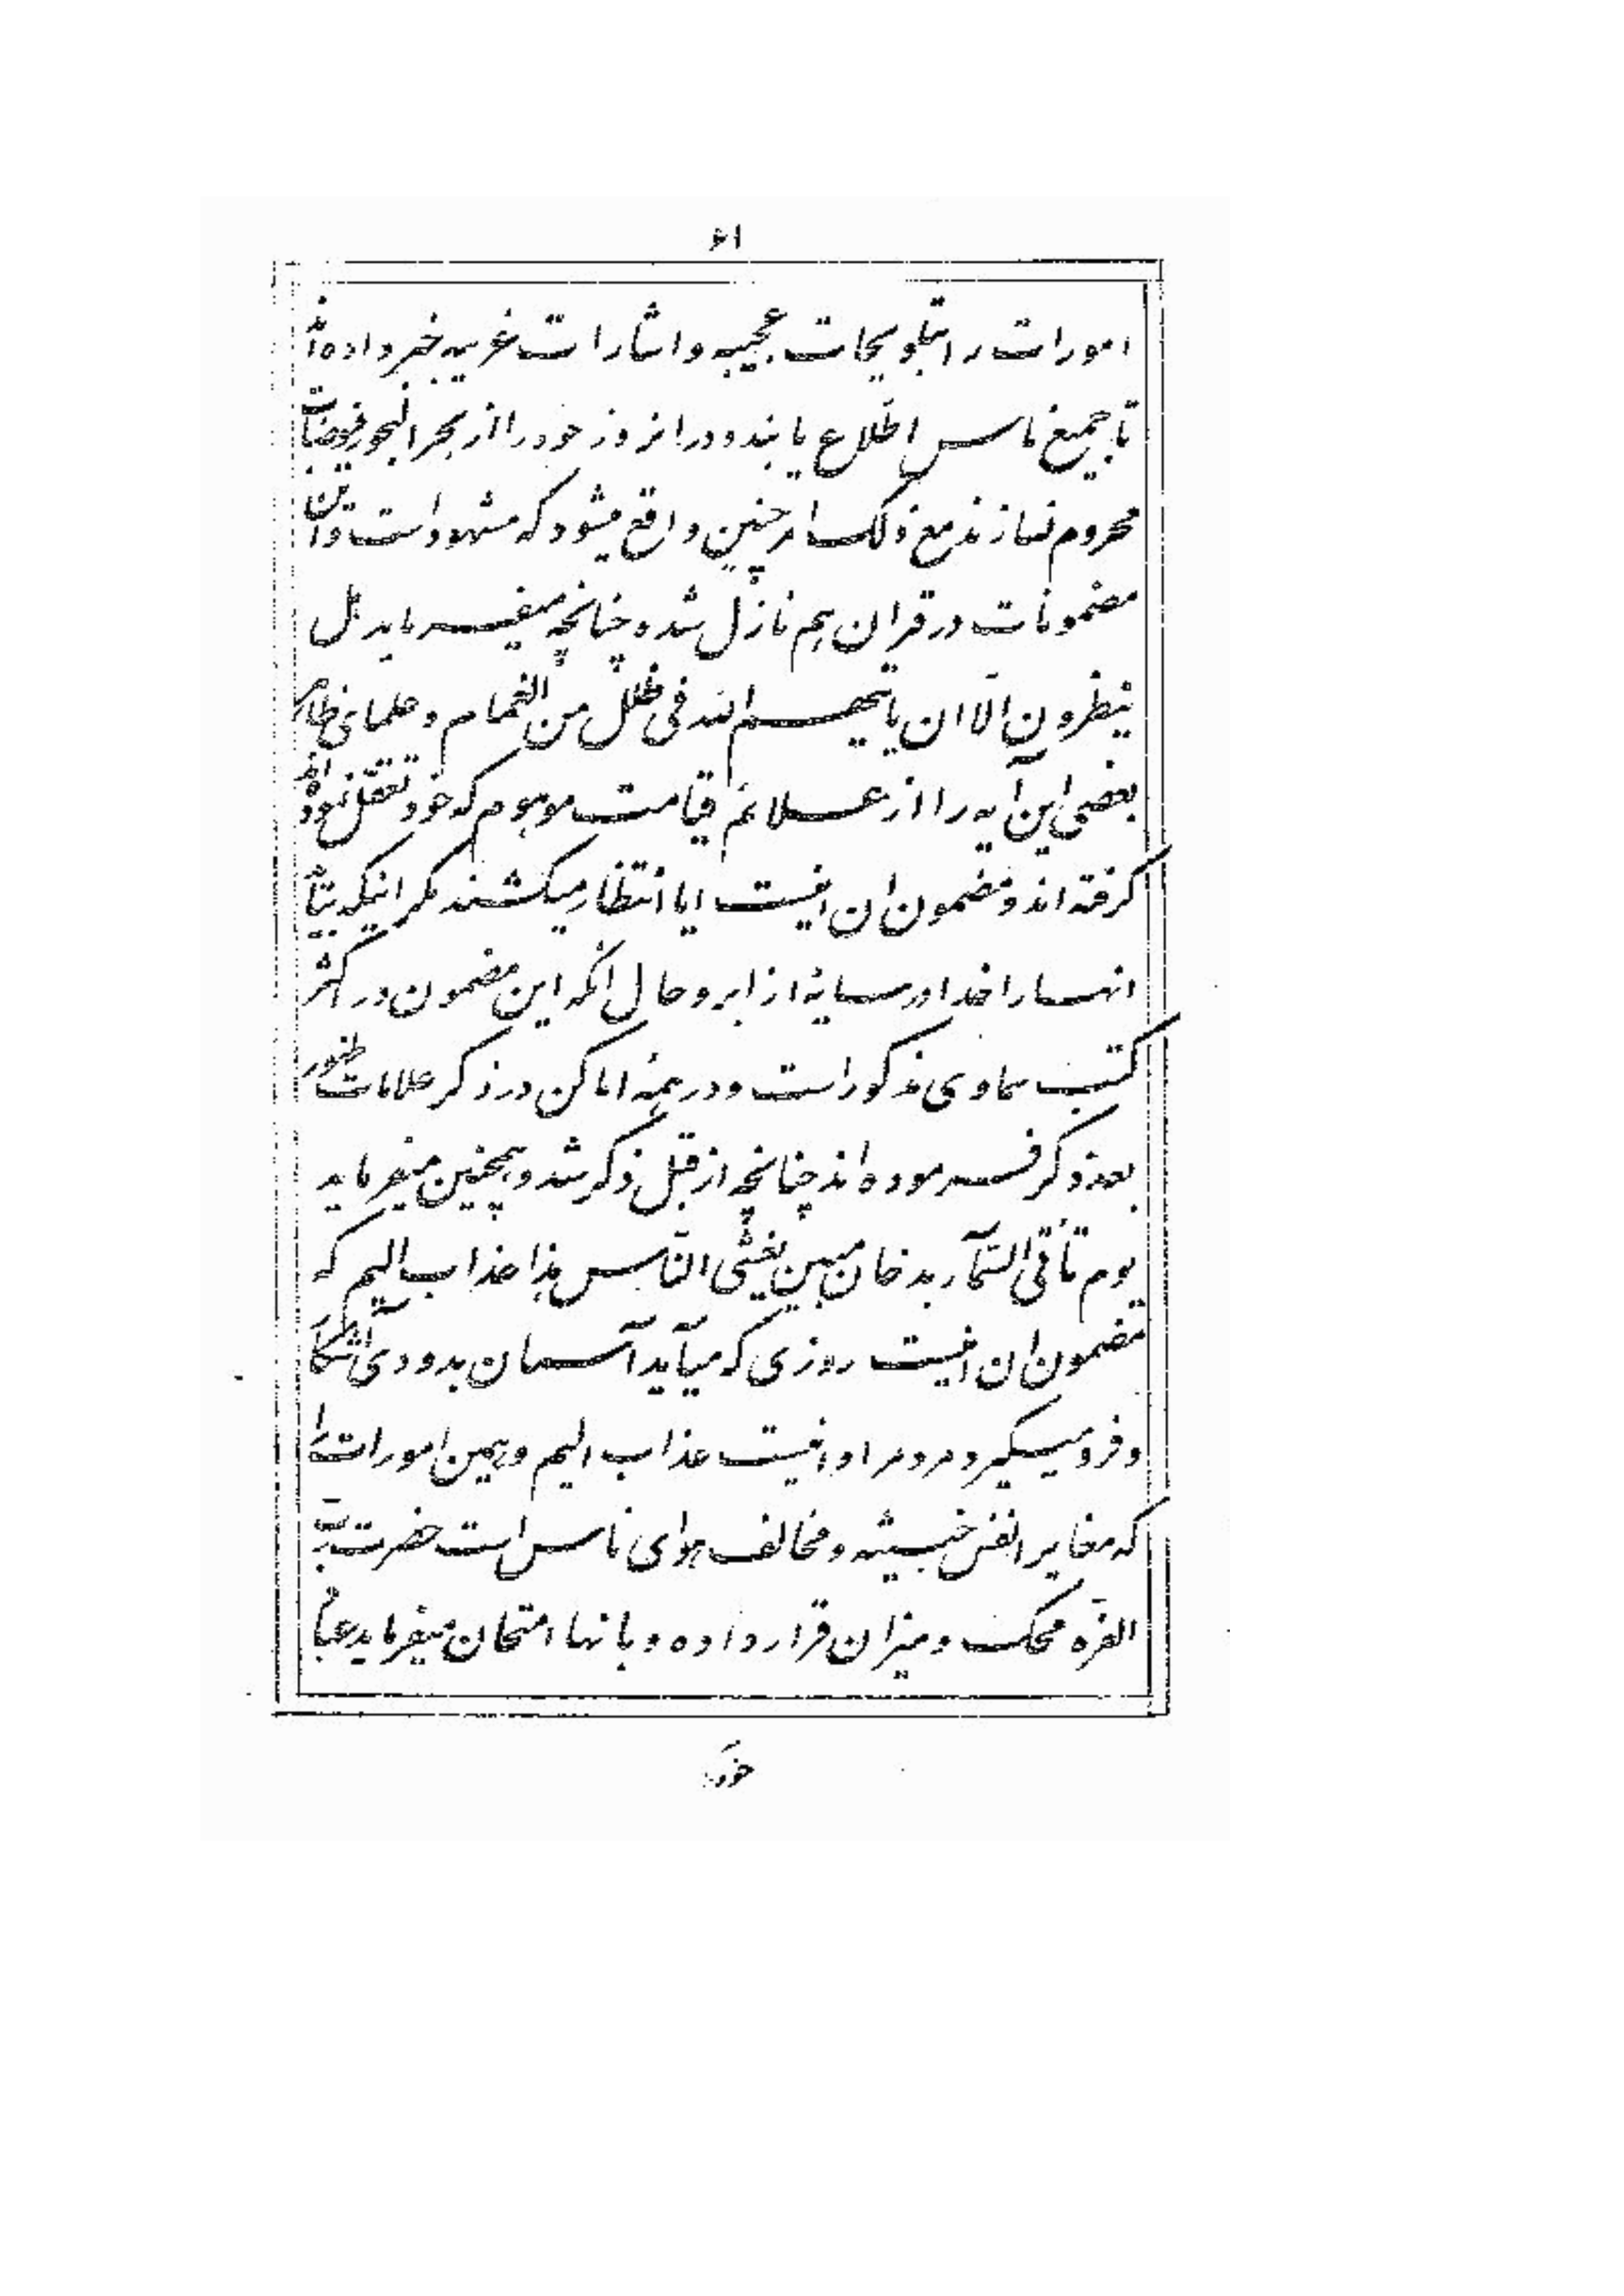 ۶۱
امورات را بتلویحات عجیبه و اشارات غریبه خبر داده‌اند
تا جمیع ناس اطلاع یابند و در انروز خود را از بحر البحور فیوضات
محروم نسازند مع ذلک امر چنین واقع میشود که مشهود است و این
مضمونات در قران هم نازل شده چنانچه میفرماید هل
ینظرون الّا ان یاتیهم اللّه فی ظلل من الغمام و علمای ظاهر
بعضی این آیه را از علائم قیامت موهوم که خود تعقل نموده‌اند
گرفته اند و مضمون ان اینست ایا انتظار میکشند مگر اینکه بیاید
انها را خدا در سایهٔ از ابر و حال انکه این مضمون در اکثر
کتب سماوی مذکور است و در همهٔ اماکن در ذکر علامات ظهور
بعد ذکر فرموده اند چنانچه از قبل ذکر شد و همچنین میفرماید
یوم تأتی السّمآء بدخان مبین یغشی النّاس هذا عذاب الیم که
مضمون ان اینست روزی که میآید آسمان بدودی آشکار
و فرو میگیرد مردم را و اینست عذاب الیم و همین امورات را
که مغایر انفس خبیثه و مخالف هوای ناس است حضرت ربّ
العزّه محک و میزان قرار داده و بانها امتحان میفرماید عباد
خود را